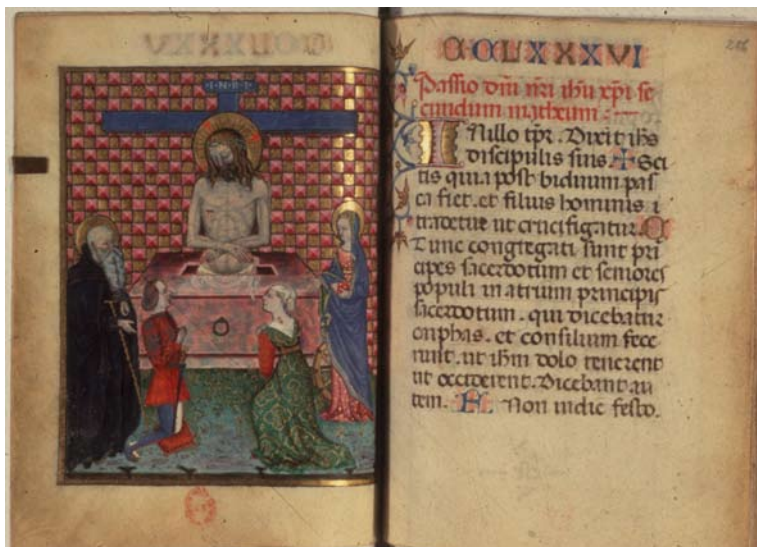 INRI
CCLXXXVI
286
Passio dni nri ihu xpi se
cundum matheum
Illo tpr. Dixit ihs
discipulis suis. + Sci
tis quia post biduum pas
ca fiet. et filius hominis
tradetur ut crucifigatur. C
Tunc congregati sunt prī
cipes sacerdotum et seniores
populi in atrium principis
sacerdotum. qui dicebatur
cayphas. et consilium fece
runt. ut ihm dolo tenerent
et occiderent. Dicebant au
tem. Non in die festo.